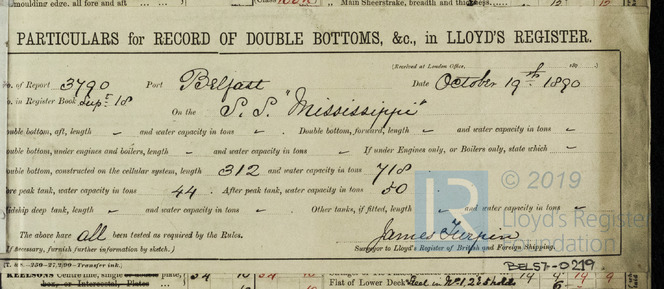 moulding edge, all fore and aft
Main Sheerstrake, breadth and thickness
PARTICULARS for RECORD OF DOUBLE BOTTOMS, &c., in LLOYD'S REGISTER.
(Received at London Office, 189 .)
o. of Report 3790 Port Belfast Date October 19th 1890
o. in Register Book Sup t 18 On the S.S. "Mississippi"
ouble bottom, aft, length " and water capacity in tons " . Double bottom, forward, length " and water capacity in tons "
ouble bottom, under engines and boilers, length " and water capacity in tons " If under Engines only, or Boilers only, state which "
ouble bottom, constructed on the cellular system, length 312 and water capacity in tons 718
ore peak tank, water capacity in tons 44 . After peak tank, water capacity in tons 50
idship deep tank, length " and water capacity in tons " Other tanks, if fitted, length " and water capacity in tons "
The above have all been tested as required by the Rules. James Turpin
(If necessary, furnish further information by sketch.) Surveyor to Lloyd's Register of British and Foreign Shipping.
Transfer ink.]
BEL57-0219
KEELSONS Centre line, single plate,
box, or Intercostal, Plates
Flat of Lower Deck
R
© 2019
Lloyd's Register
Foundation